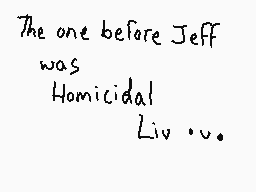 The one before Jeff
was
Homicidal
Liv •u•